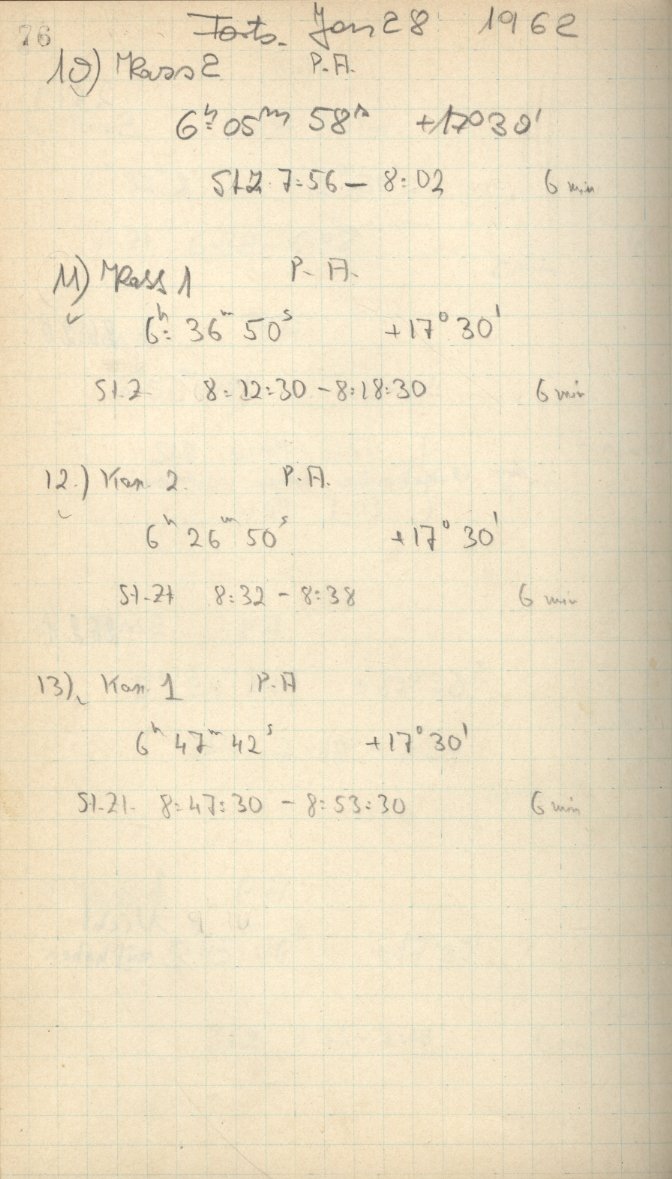 76 Forts. Jan 28 1962
10) Kass 2 P.A.
6h 05m 58s +17° 30'
St.Z. 7:56 – 8:02 6 min
11) Kass 1 P.A.
6h 36m 50s +17° 30'
St.Z 8:12:30 – 8:18:30 6 min
12.) Kas. 2 P.A.
6h 26m 50s +17° 30'
St.Zt 8:32 – 8:38 6 min
13) Kas. 1 P.A
6h 47m 42s +17° 30'
St.Zt. 8:47:30 – 8:53:30 6 min